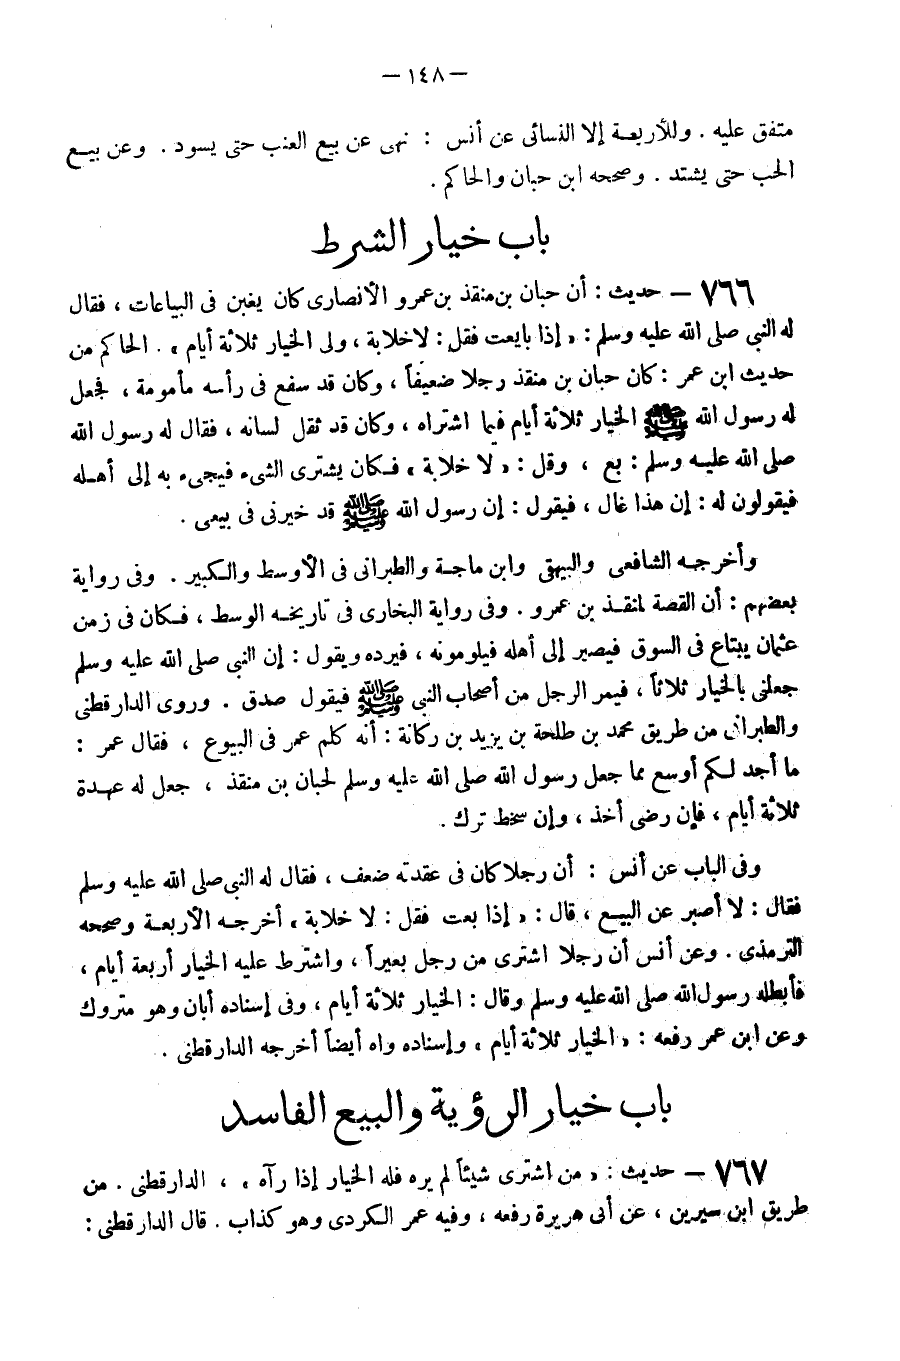 — ١٤٨ —
متفق عليه . وللأربعة إلا النسائى عن أنس : نهى عن بيع العنب حتى يسود . وعن بيع
الحب حتى يشتد . وصححه ابن حبان والحاكم .
باب خيار الشرط
٧٦٦ — حديث : أن حبان بن منقذ بن عمرو الأنصارى كان يغبن فى البياعات ، فقال
له النبي صلى الله عليه وسلم : « إذا بايعت فقل : لاخلابة ، ولى الخيار ثلاثة أيام » . الحاكم من
حديث ابن عمر : كان حبان بن منقذ رجلا ضعيفاً ، وكان قد سفع فى رأسه مأمومة ، فجعل
له رسول الله ﷺ الخيار ثلاثة أيام فيما اشتراه ، وكان قد ثقل لسانه ، فقال له رسول الله
صلى الله عليه وسلم : بع ، وقل : « لا خلابة » فكان يشترى الشىء فيجىء به إلى أهله
فيقولون له : إن هذا غال ، فيقول : إن رسول الله ﷺ قد خيرنى فى بيعى .
وأخرجه الشافعى والبيهقى وابن ماجة والطبرانى فى الأوسط والكبير . وفى رواية
بعضهم : أن القصة لمنقذ بن عمرو . وفى رواية البخارى فى تاريخه الوسط ، فكان فى زمن
عثمان يبتاع فى السوق فيصير إلى أهله فيلومونه ، فيرده ويقول : إن النبى صلى الله عليه وسلم
جعلنى بالخيار ثلاثاً ، فيمر الرجل من أصحاب النبى ﷺ فيقول صدق . وروى الدارقطنى
والطبرانى من طريق محمد بن طلحة بن يزيد بن ركانة : أنه كلم عمر فى البيوع ، فقال عمر :
ما أجد لكم أوسع مما جعل رسول الله صلى الله عليه وسلم لحبان بن منقذ ، جعل له عهدة
ثلاثة أيام ، فإن رضى أخذ ، وإن سخط ترك .
وفى الباب عن أنس : أن رجلا كان فى عقدته ضعف ، فقال له النبى صلى الله عليه وسلم
فقال : لا أصبر عن البيع ، قال : « إذا بعت فقل : لا خلابة » أخرجه الأربعة وصححه
الترمذى . وعن أنس أن رجلا اشترى من رجل بعيراً ، واشترط عليه الخيار أربعة أيام ،
فأبطله رسول الله صلى الله عليه وسلم وقال : الخيار ثلاثة أيام ، وفى إسناده أبان وهو متروك
وعن ابن عمر رفعه : « الخيار ثلاثة أيام » وإسناده واه أيضاً أخرجه الدارقطنى .
باب خيار الرؤية والبيع الفاسد
٧٦٧ — حديث : « من اشترى شيئاً لم يره فله الخيار إذا رآه » ، الدارقطنى . من
طريق ابن سيرين ، عن أبى هريرة رفعه ، وفيه عمر الكردى وهو كذاب . قال الدارقطنى :